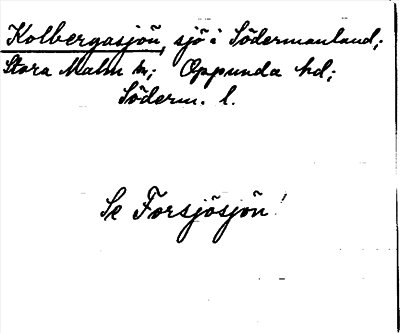 Kolbergasjön, sjö i Södermanland;
Stora Malm sn; Oppunda hd;
Söderm. l.
Se Forsjösjön!